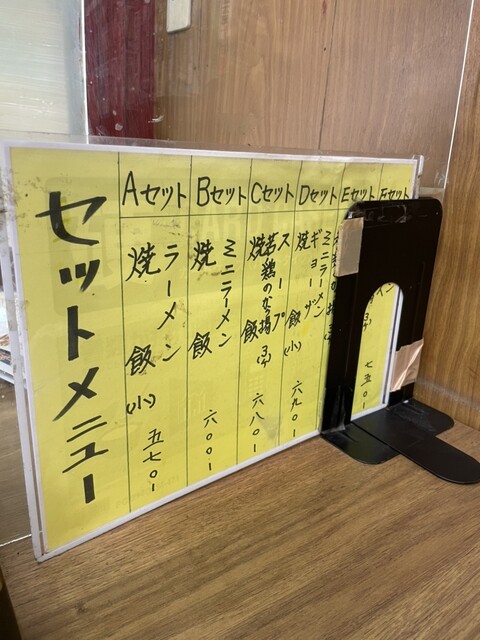 セットメニュー
Aセット
ラーメン
焼飯(小)
五七〇-
Bセット
ミニラーメン
焼飯
六〇〇-
Cセット
スープ
若鶏のから揚
焼飯
六八〇-
Dセット
ミニラーメン
ギョーザ
焼飯(小)
六九〇-
Eセット
Fセット
七五〇-